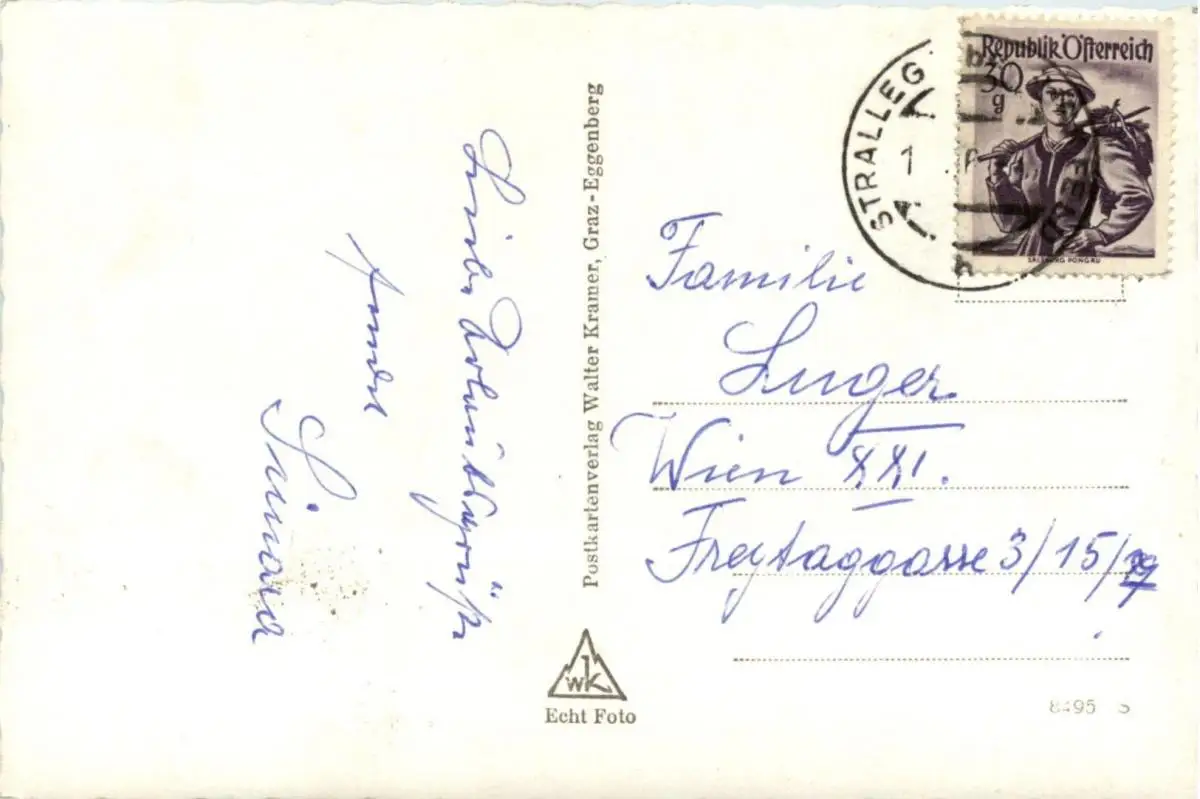 Liebe Urlaubsgrüße
Familie
Luger
Wien XXI.
Freytaggasse 3/15/19
Postkartenverlag Walter Kramer, Graz-Eggenberg
WK
Echt Foto
8495 S
STRALLEGG
1
Republik Österreich
30
g
SALZBURG PONGAU